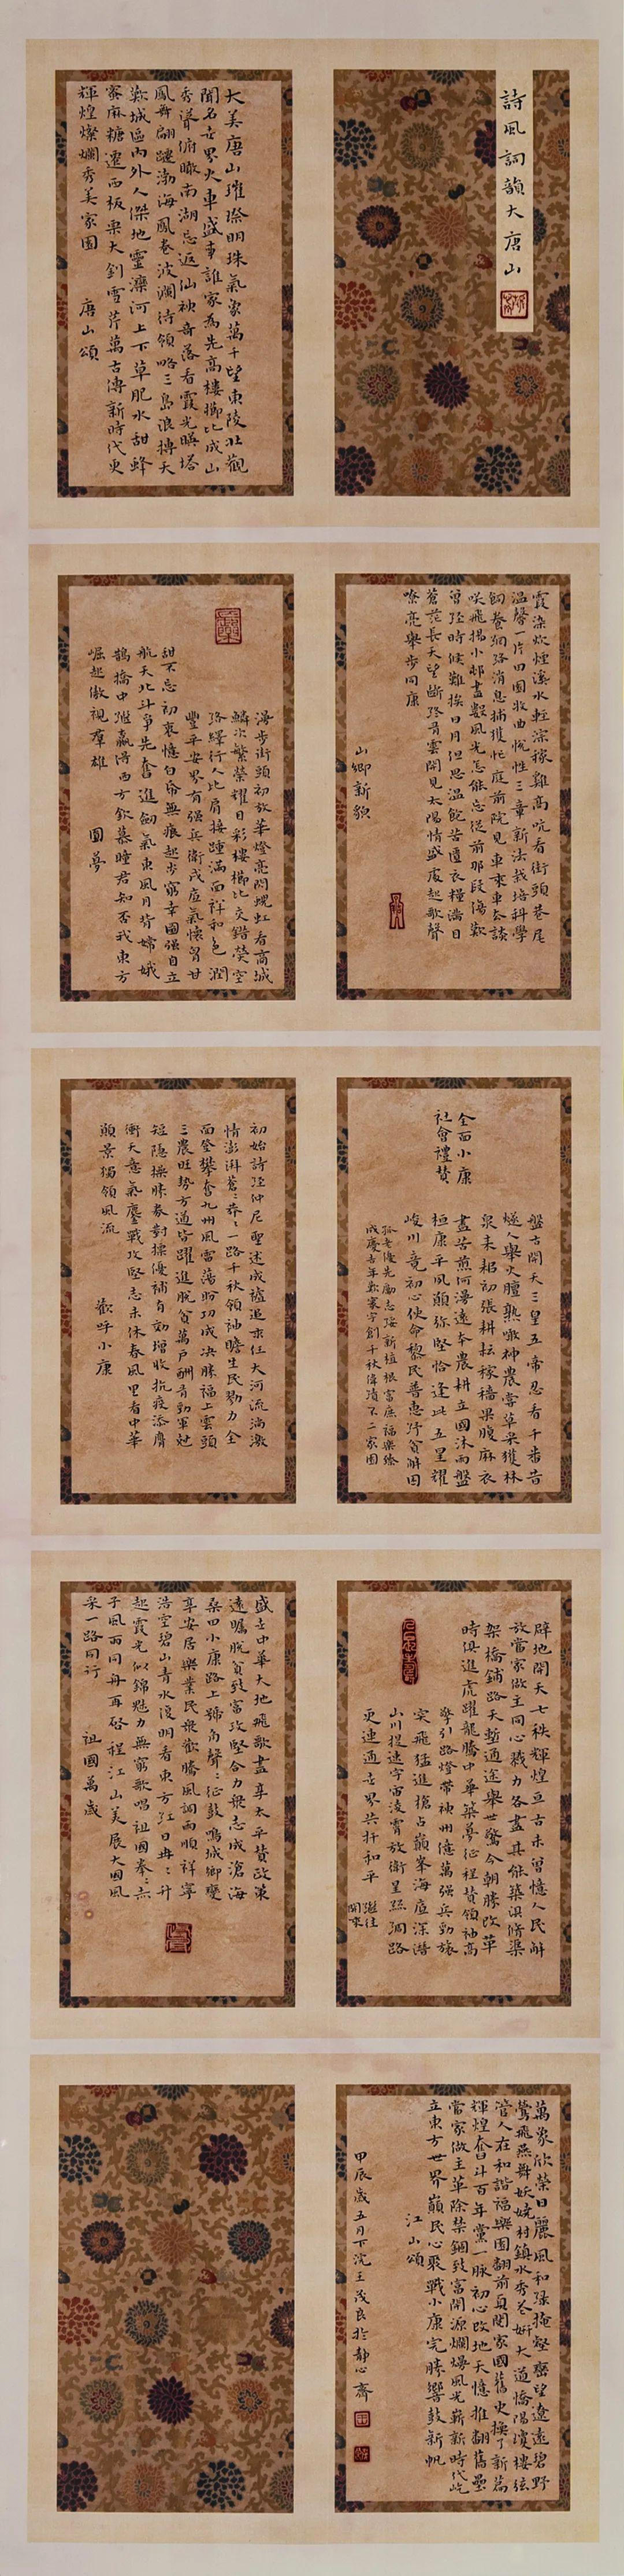 詩風詞韻大唐山
大美唐山璀璨明珠氣象萬千望東陵壯觀
聞名世界火車盛事誰家為先高樓櫛比成山
秀聳俯瞰南湖忘返仙袂奇落看霞光暎塔
鳳舞翩躚渤海風卷波瀾待領略三島浪摶天
嘆城區內外人傑地靈灤河上下草肥水甜蜂
蜜麻糖遷西板栗大釗雪芹萬古傳新時代更
輝煌燦爛秀美家園 唐山頌
霞染炊煙溪水輕淙稼雞高吭看街頭巷尾
温馨一片田園牧曲悅性三章新法栽培科學
飼養網絡消息捕獲忙庭前院見車來車去談
笑飛揚小邨盡數風光怎能忘從前那段傷歎
曾經時候難挨日月但思温飽苦匱衣糧滿目
蒼茫長天望斷終有雲開見太陽情盛處起歌聲
嘹亮舉步同康
山鄉新貌
漫步街頭初放華燈亮閃螝虹看商城
鱗次繁榮耀日彩樓櫛比交錯熒空
路繹行人比肩接踵滿面祥和色潤
豐平安界有强兵衛戍虛氣懷胸甘
甜不忘初衷憶白帝無痕起步窮幸國强自立
航天北斗爭先奮進劍氣東風月背嫦娥
鵲橋中繼贏得西方欽慕瞳君知否我東方
崛起傲視羣雄 圓夢
全面小康
社會禮贊
盤古開天三皇五帝忍看千番苦
燧人與火膻熟噉神農嘗草采獲林
泉耒耜初張耕耘稼穡果腹麻衣
盡苦煎何漫遠本農耕立國沐雨盤
桓康平夙願弥堅恰逢此五星耀
峻川竟初心使命黎民普惠紓貧解困
孤老優先勵志接新植根富庶福樂緣
成慶去年歎寰宇創千秋偉績不二家園
初始詩經仲尼聖述成謐追求任大河流淌激
情澎湃蒼々莽々一路千秋領袖瞻生民勠力全
面登攀奮九州風雷蕩盼功成决勝福上雲頭
三農旺勢方遒皆躍進脫貧萬户酬有勁軍尅
短隐操勝券對標優補有効增收抗疫添膺
衝天意氣鏖戰攻堅志未休春風里看中華
願景獨領風流
歡呼小康
辟地開天七秩輝煌亘古未曾憶人民解
放當家做主同心戮力各盡其能築渠脩梁
架橋鋪路天塹通途舉世驚今朝勝改革
時俱進虎躍龍騰中華築夢征程贊領袖高
擎引路燈帶神州億萬强兵勁旅
突飛猛進搶占巔峯海底深潛
山川提速宇宙淩霄放衛星絲綢路
更連通世界共扞和平 繼往
開來
盛世中華大地飛歌盡享太平贊政策
遠矚脫貧致富攻堅合力衆志成滄海
桑田小康路上號角聲々征鼓鳴城鄉變
享安居樂業民衆歡騰風調雨順祥寧
浩空碧山青水復明看東方紅日冉々升
起霞光似錦魅力無窮歌唱祖國拳々赤
子風雨同舟再啓程江山美展大國風
采一路同行 祖國萬歲
萬象欣榮日麗風和强掩壑巒望遼遠碧野
鶯飛燕舞妖嬈村鎮水秀花妍大道橋陽濱樓弦
管人在和諧福樂園翻前頁閱家國舊史換了新篇
輝煌奮斗百年黨一脉初心改地天憶推翻舊壘
當家做主革除禁錮致富開源爛熳風光嶄新時代屹
立東方世界巔民心聚戰小康完勝響鼓新帆
江山頌
甲辰歲五月下浣王茂良於靜心齋